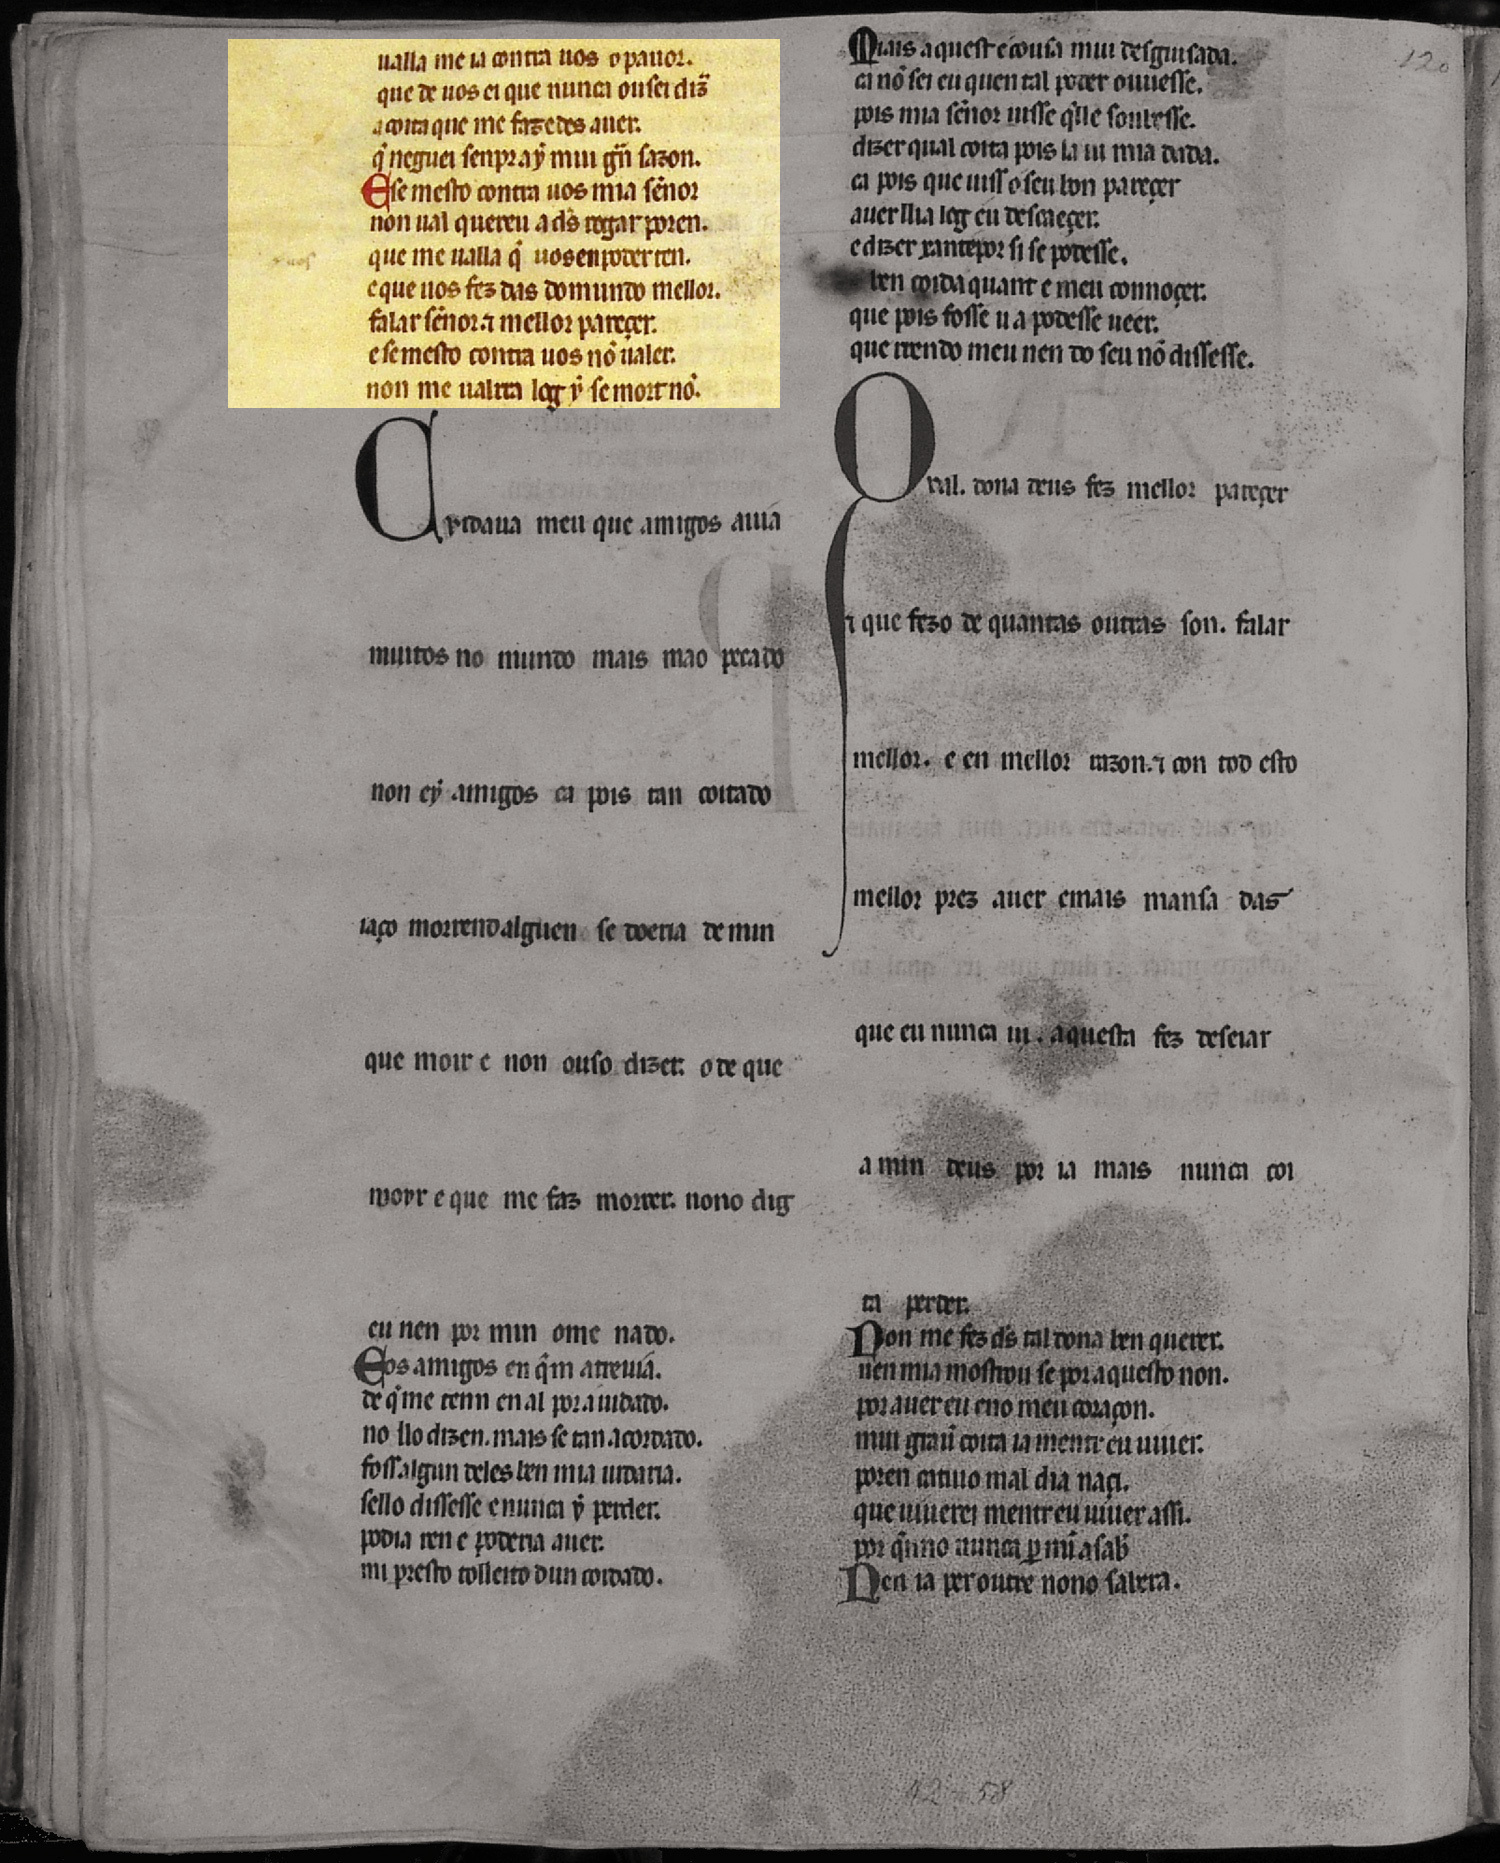 ualla me ia contra uos o pauor.
que de uos ei que nunca ousei diz̃
a coita que me fazedes auer.
q̃ neguei senpr aẏ mui gñ sazon.
E se mesto contra uos mia señor
non ual quereu a ds̃ rogar poren.
que me ualla q̃ uos en poder ten.
e que uos fez das do mundo mellor.
falar señor ⁊ mellor pareçer.
e se mesto contra uos nõ ualer.
non me ualrra log ẏ se mort nõ.
Cuydaua meu que amigos auiã
muitos no mundo mais mao pecado
non eẏ amigos ca pois tan coitado
iaço morrend alguen se doeria de min
que moir e non ouso dizer. o de que
moyr e que me faz morrer. nono dig
eu nen por min ome nado.
E os amigos en q̃m atreuiã.
de q̃ me tenn en al por aiudado.
no llo dizen. mais se tan acordado.
foss algun deles ben mia iurdaria.
sello dissesse e nunca ẏ perder.
podia ren e poderia auer.
mi presto tolleito dun coidado.
Mais aquest e cousa mui desguisada.
ca nõ sei eu quen tal poder ouuesse.
pois mia señor uisse q̃lle soubesse.
dizer qual coita pois la ui mia dada.
ca pois que uiss o seu bon pareçer
auer llia log eu descaeçer.
e dizer xante por si se podesse.
ben coida quant e meu connoçer.
que pois fosse u a podesse ueer.
que rren do meu nen do seu nõ dissesse.
O
tal. dona deus fez mellor pareçer
⁊ que fezo de quantas outras son. falar
mellor. e en mellor razon. ⁊ con tod esto
mellor prez auer e mais mansa das
que eu nunca ui. aquesta fez deseiar
a min deus por ia mais nunca coi
ta perder.
Non me fez ds̃ tal dona ben querer.
nen mia mostrou se por aquesto non.
por auer eu eno meu coraçon.
mui grañ coita ia mentr eu uiuer.
poren catiuo mal dia naçi.
que uiuerei mentr eu uiuer assi.
por q̃n no nunca ꝑ mĩ a sab̃
Nen ia per outre nono sabera.
120
42-58